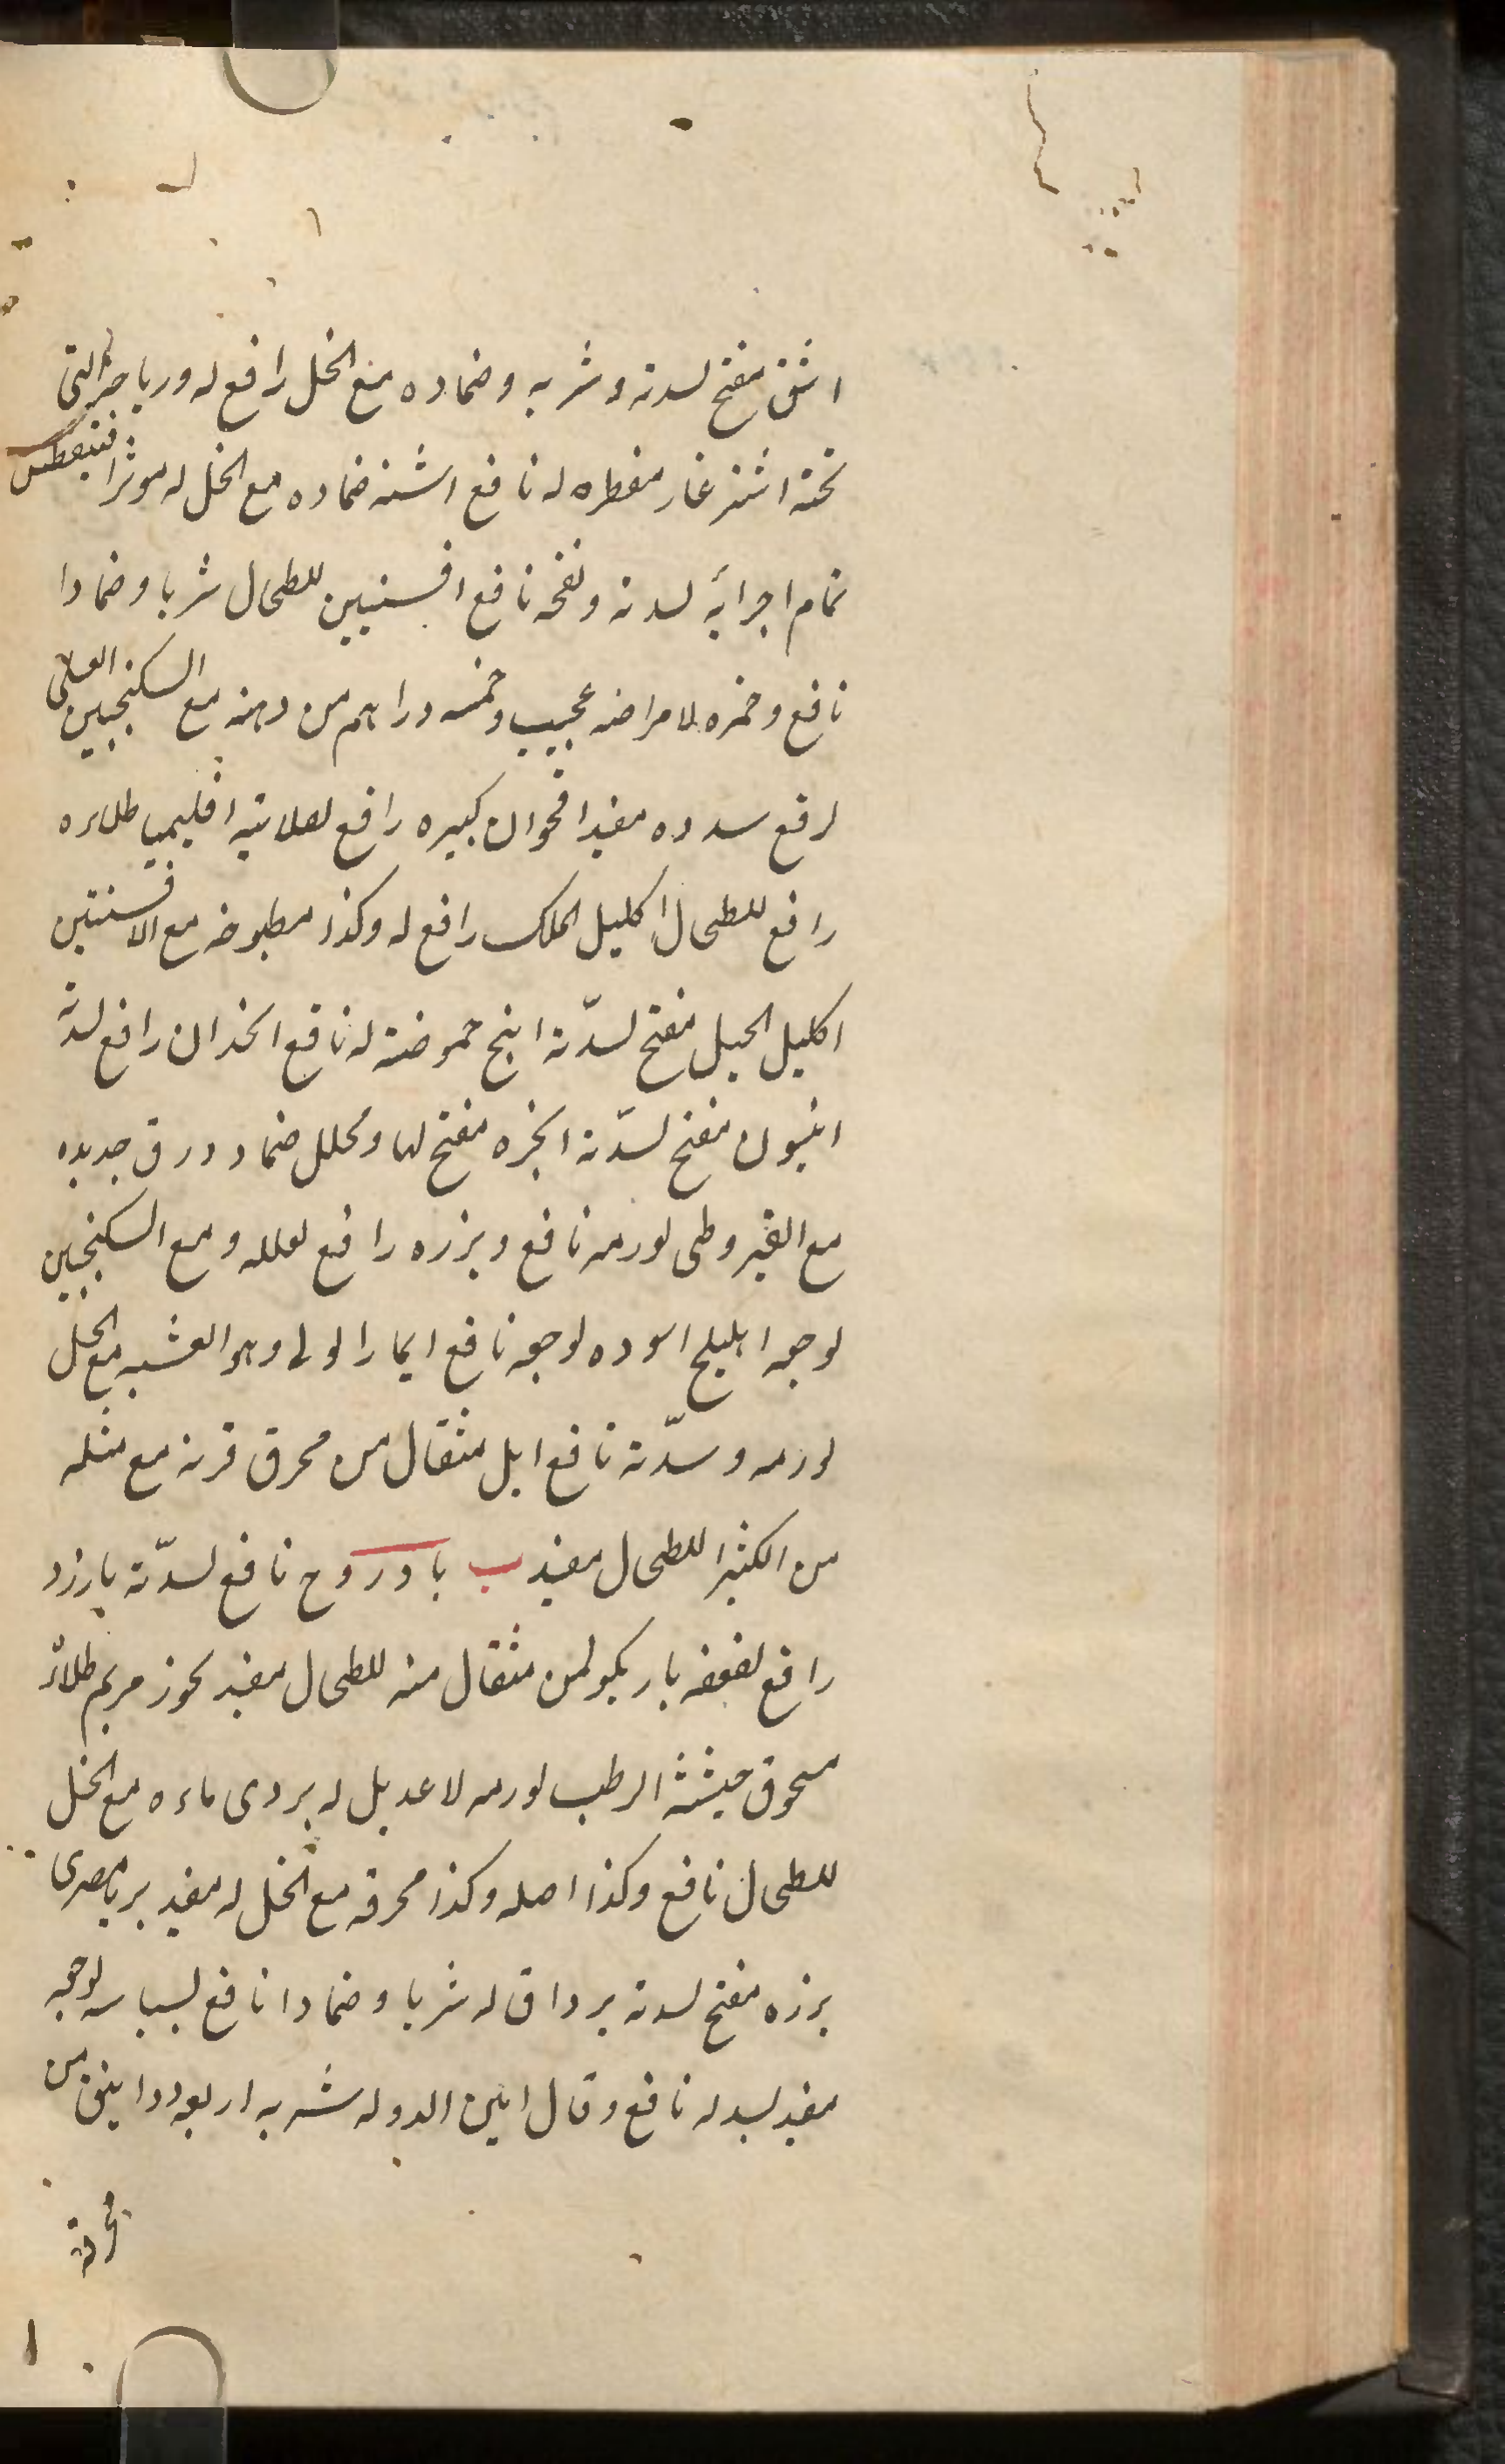 اشق مفتح لسدته وشربه وضماده مع الخل رافع له وریاحه التی
تحته اشترغار مفطره له نافع اشنه ضماده مع الخل له موثر افتیمطس
تمام اجرایه لسدته ونفخه نافع افسنتین للطحال شربا وضمادا
نافع وخمره لامراضه عجیب وخمسه دراهم من دهنه مع السکنجبین العسلی
لرفع سدده مفید اقحوان کبیره رافع لصلابته اقلیمیا طلاءه
رافع للطحال اکلیل الملک رافع له وکذا مطبوخه مع الافسنتین
اکلیل الجبل مفتح لسدّته انبج حموضته له نافع انجدان رافع لسدته
انیسون مفتح لسدّته انجره مفتح لها ومحلل ضماد ورق جدیده
مع القیروطی لورمه نافع وبزره رافع لعلله ومع السکنجبین
لوجعه اهلیلج اسوده لوجعه نافع ایمارا ولی وهو العشبه مع الخل
لورمه وسدّته نافع ایل مثقال من محرق قرنه مع مثله
من الکثیرا للطحال مفید ب بادروج نافع لسدّته بارزد
رافع لضعفه باریکولمن مثقال منه للطحال مفید بخور مریم طلاء
مسحوق حیشثه الرطب لورمه لا عدیل له بردی ماءه مع الخل
للطحال نافع وکذا اصله وکذا محرقه مع الخل له مفید بریا مصری
بزره مفتح لسدته برداق له شربا وضمادا نافع بسباسه لوجعه
مفید لسدله نافع وقال امین الدوله شربه اربعه دوانیق من
محرقه